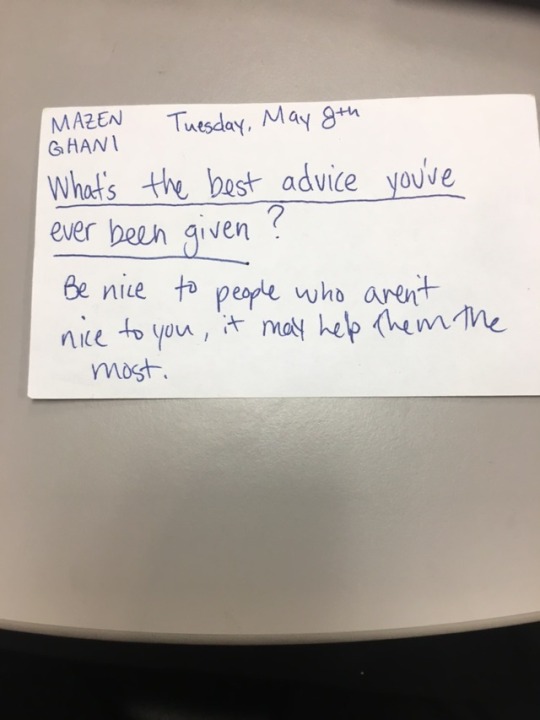 MAZEN Tuesday, May 8th
GHANI
What's the best advice you've
ever been given?
Be nice to people who aren't
nice to you, it may help them the
most.